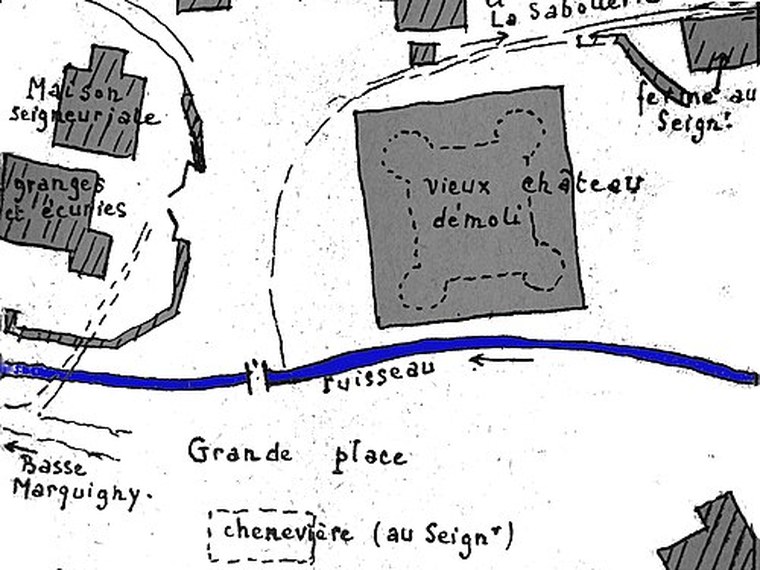 La Sabotterie
Maison
seigneuriale
ferme au
Seignr
granges
et écuries
vieux château
démoli
ruisseau
Grande place
Basse
Marquigny.
chenevière (au Seignr)